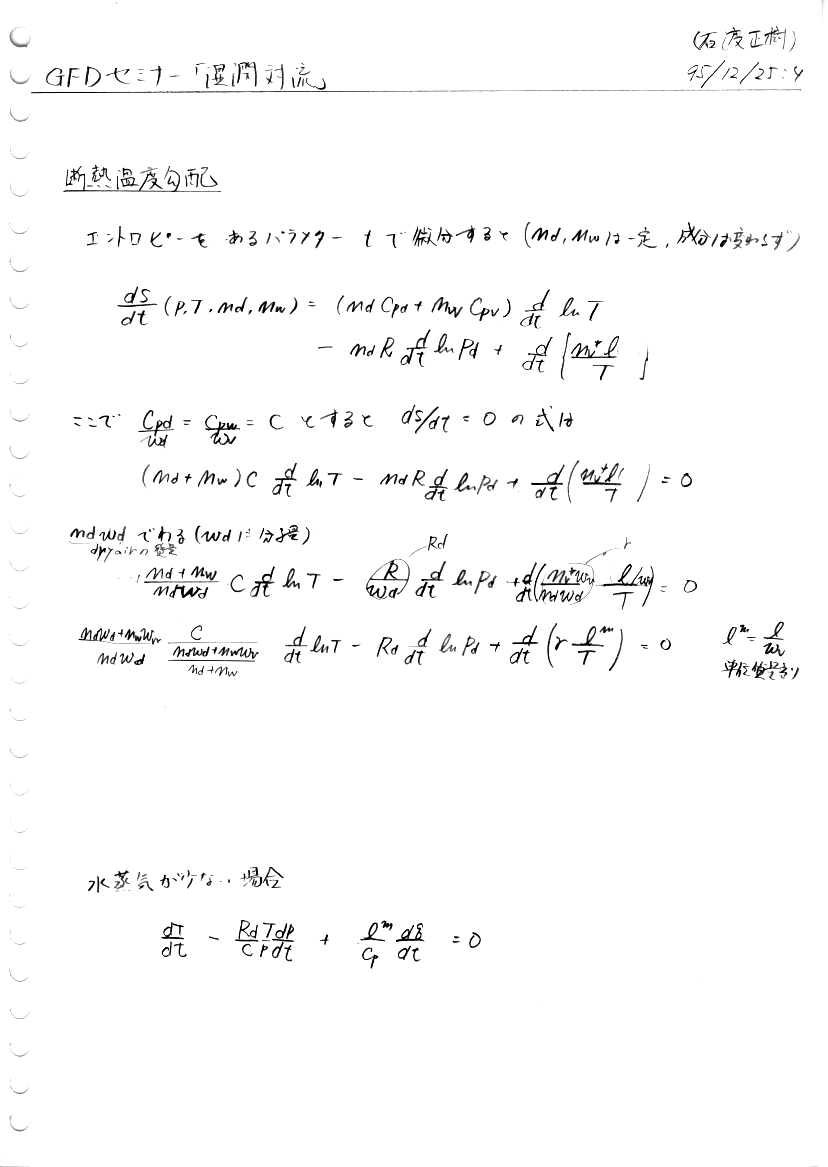 (石渡正樹)
GFDセミナー「湿潤対流」 95/12/25:4
断熱温度勾配
エントロピーを あるパラメター t で 微分すると (nd, nw は一定, 成分は変わらず)
dS/dt (P, T, nd, nw) = (nd Cpd + nw Cpv) d/dt ln T
− nd R d/dt ln Pd + d/dt [nv* l / T]
ここで Cpd/wd = Cpw/wv = C とすると ds/dt = 0 の式は
(nd + nw) C d/dt ln T − nd R d/dt ln Pd + d/dt (nv* l / T) = 0
nd wd でわる (wd は分子量)
dry air の質量
Rd r
(nd + nw)/(nd wd) C d/dt ln T − (R/wd) d/dt ln Pd + d/dt ((nv* wv)/(nd wd) (l/wv)/T) = 0
(nd wd + nw wv)/(nd wd) C/((nd wd + nw wv)/(nd + nw)) d/dt ln T − Rd d/dt ln Pd + d/dt (r l^m/T) = 0 l^m = l/wv
単位質量あたり
水蒸気が少ない場合
dT/dt − Rd T/(C P) dP/dt + l^m/Cp dq/dt = 0